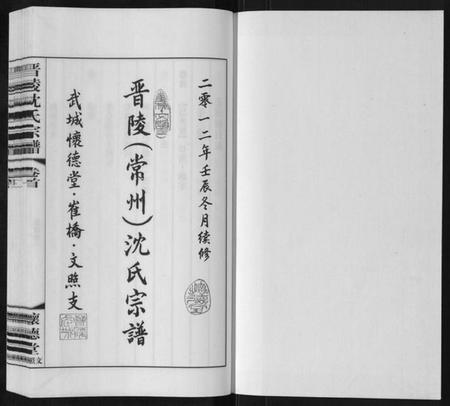 二零一二年壬辰冬月续修
晋陵(常州)沈氏宗譜
武城懷德堂·崔橋·文照支
晋陵沈氏宗譜
卷首
懷德堂